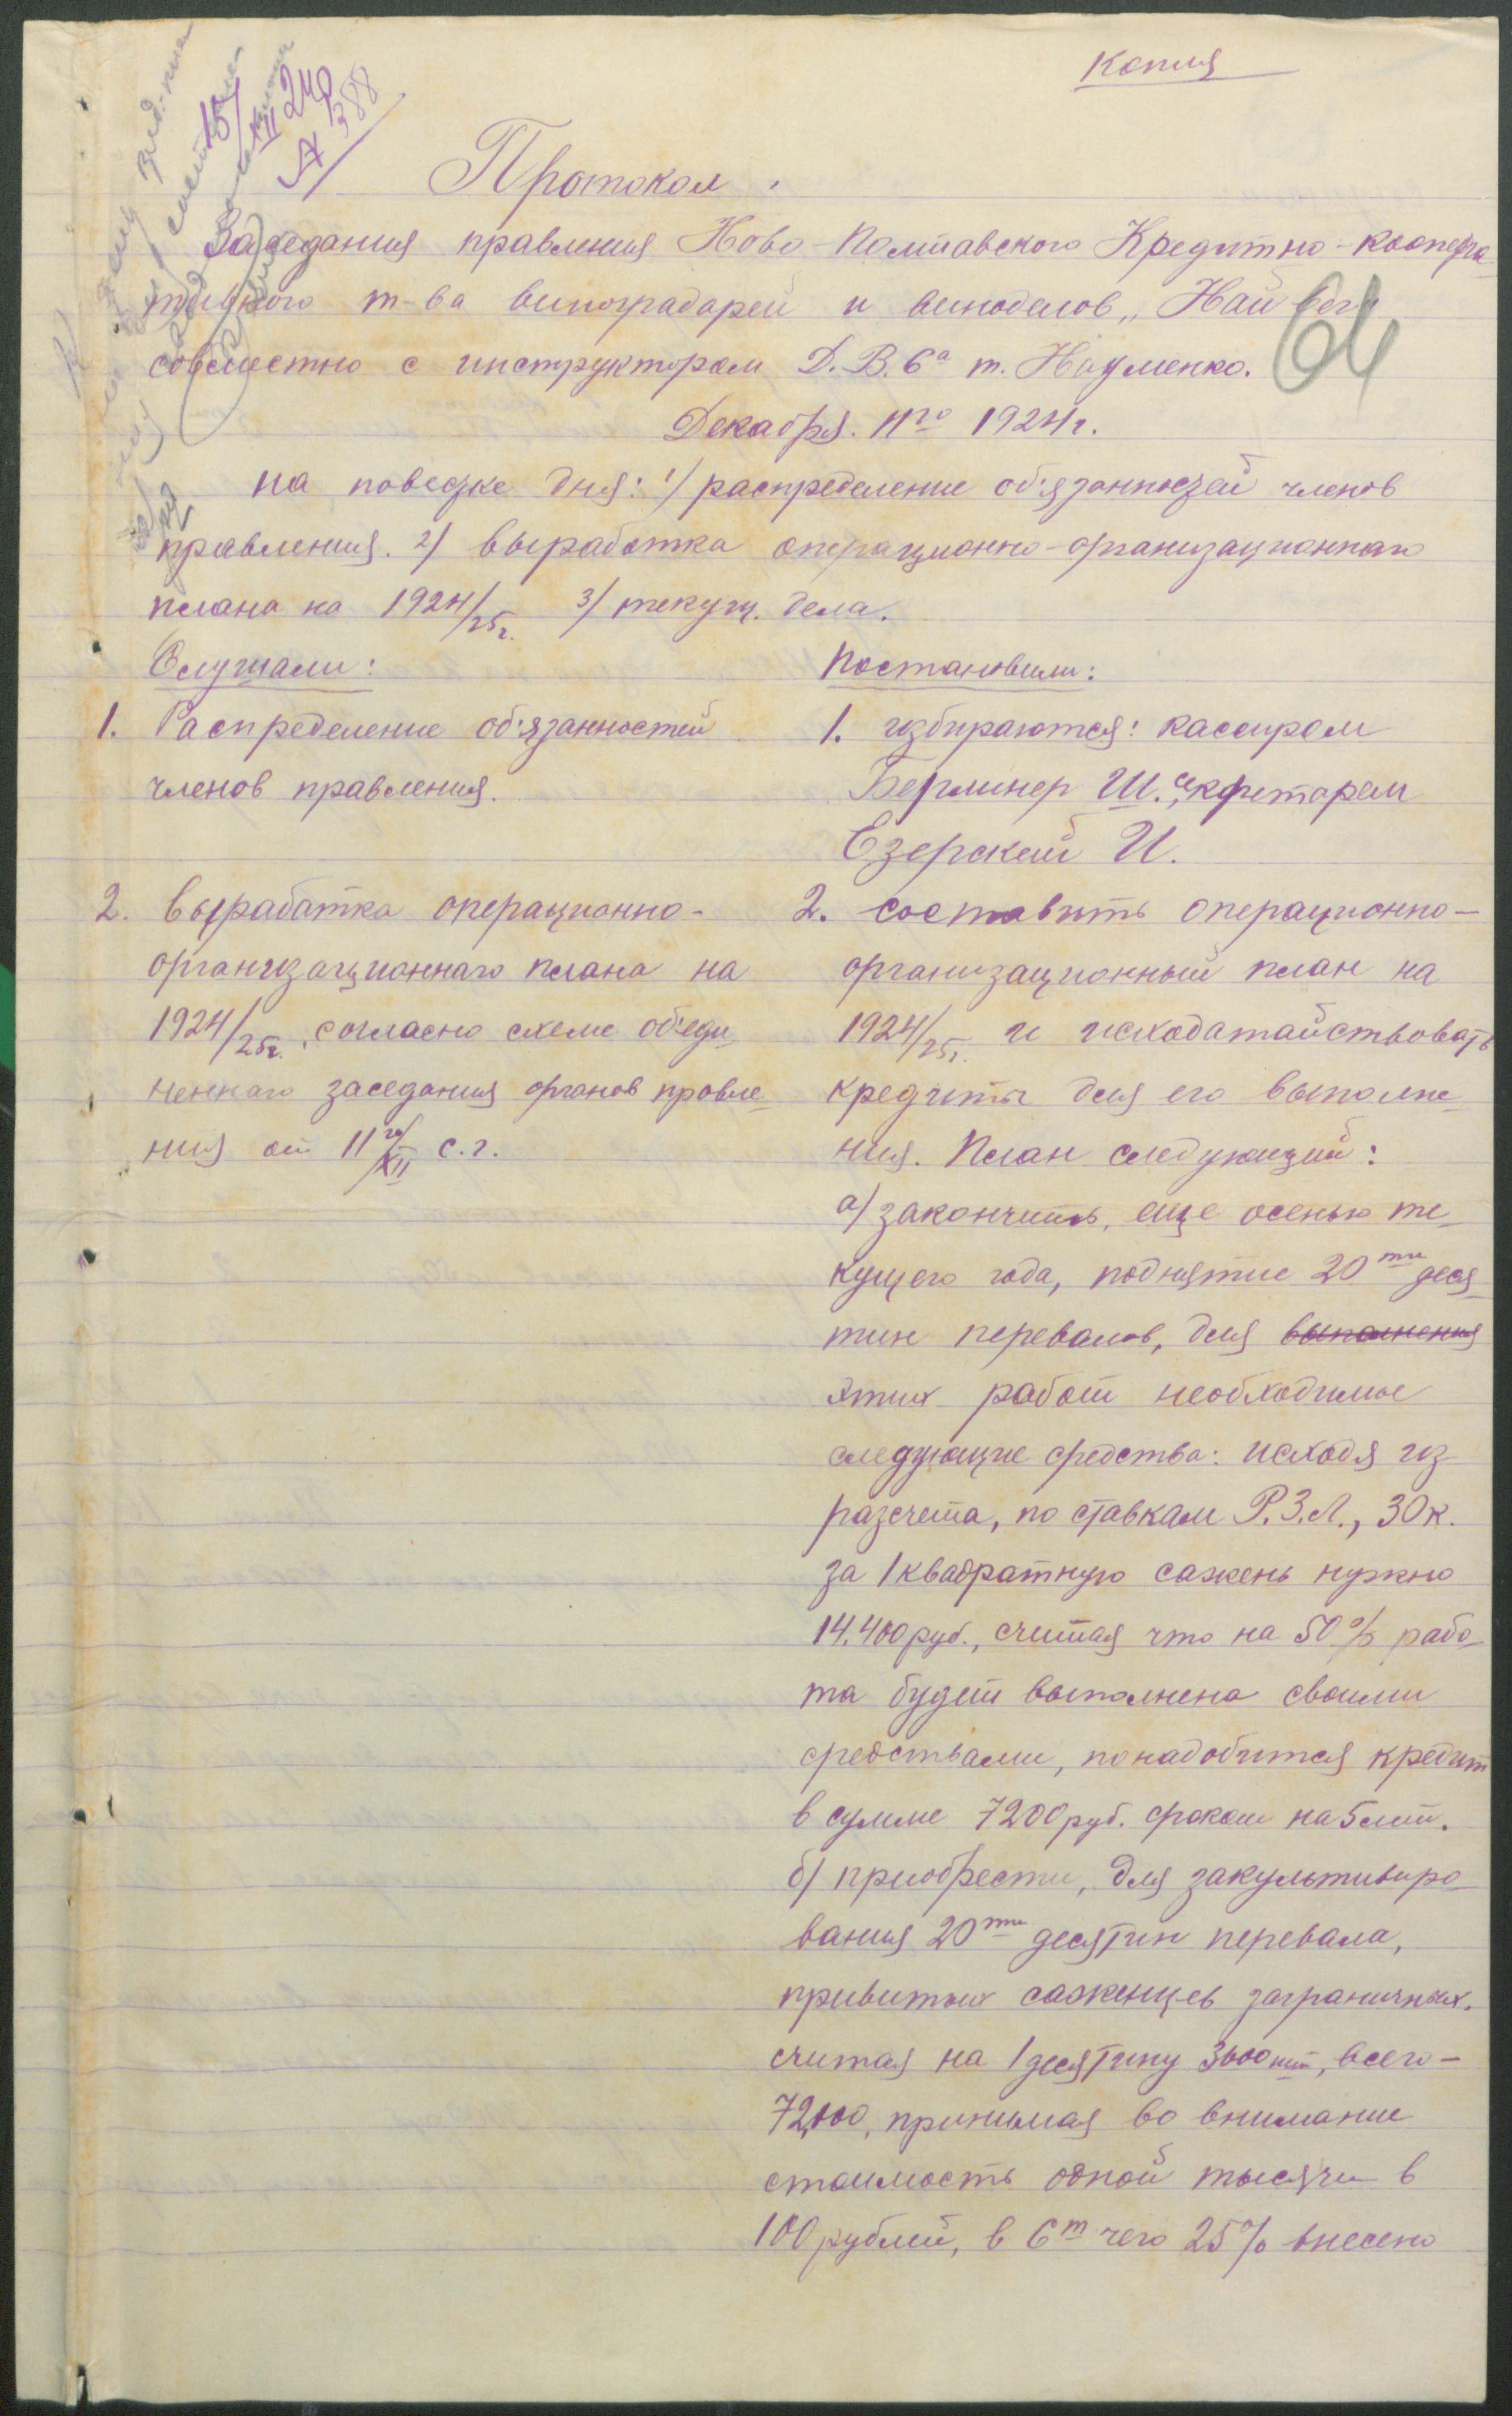 Копия
15/XII 24
№ 388
64
Протокол.
Заседания правления Ново-Полтавского Кредитно-коопера-
тивного т-ва виноградарей и виноделов „Най Вег"
совместно с инструктором Д.В.Ба т. Науменко.
Декабря. 11го 1924г.
на повестке дня: 1/ распределение об'язанностей членов
правления. 2/ выработка операционно-организационнаго
плана на 1924/25г. 3/ текущ. дела.
Слушали:
1. Распределение об'язанностей
членов правления.
2. выработка операционно-
организационнаго плана на
1924/25г., согласно схеме об'еди-
неннаго заседания органов правле-
ния от 11го/XII с.г.
Постановили:
1. избираются: кассиром
Берлинер Ш., секретарем
Езерский И.
2. составить операционно-
организационный план на
1924/25г. и исходатайствовать
кредиты для его выполне-
ния. План следующий:
а/ закончить, еще осенью те-
кущего года, поднятие 20ти деся-
тин перевалов, для выполнения
этих работ необходимые
следующие средства: исходя из
разсчета, по ставкам Р.З.Л., 30к.
за 1 квадратную сажень нужно
14.400 руб., считая что на 50% рабо-
та будет выполнена своими
средствами, понадобится кредит
в сумме 7200 руб. сроком на 5 лет.
б/ приобрести, для закультивиро-
вания 20ти десятин перевала,
привитых саженцев заграничных.
считая на 1 десятину 3600 шт, всего-
72,000, принимая во внимание
стоимость одной тысячи в
100 рублей, в счт чего 25% внесено